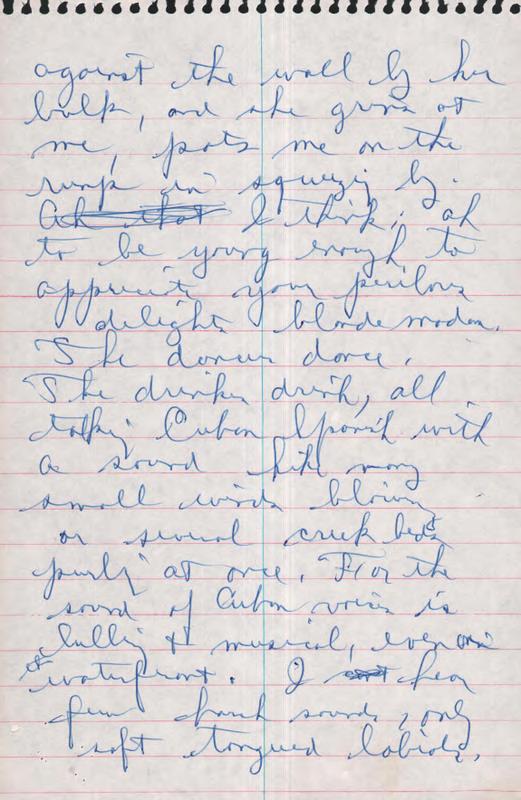 against the wall by her
bulk, and she grins at
me, pats me on the
rump in squeezing by.
Ah that I think: ah
to be young enough to
appreciate your perilous
delights blonde madam.
The dancers dance.
The drinkers drink, all
talking Cuban Spanish with
a sound like many
small winds blowing
or several creek beds
purling at once. For the
sound of Cuban voices is
lulling & musical, even on
waterfront. I hear
few harsh sounds, only
soft tongued labials,